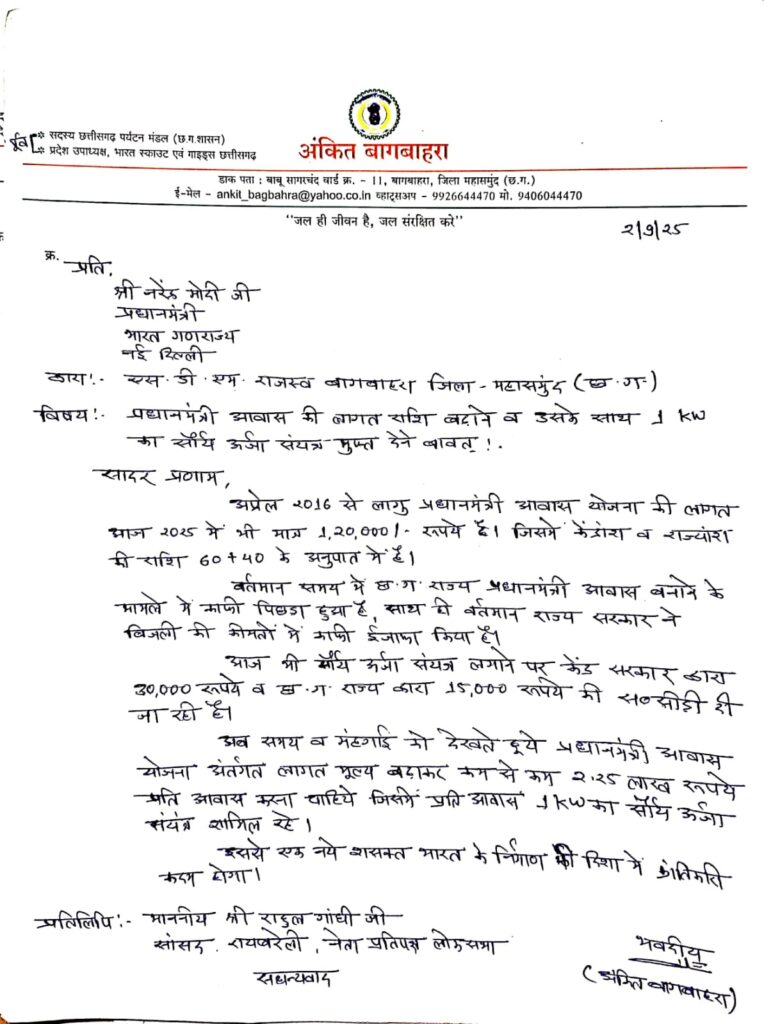 पूर्व
* सदस्य छत्तीसगढ़ पर्यटन मंडल (छ.ग.शासन)
* प्रदेश उपाध्यक्ष, भारत स्काउट एवं गाइड्स छत्तीसगढ़
अंकित बागबाहरा
डाक पता : बाबू सागरचंद वार्ड क्र. - 11, बागबाहरा, जिला महासमुंद (छ.ग.)
ई-मेल - ankit_bagbahra@yahoo.co.in व्हाट्सअप - 9926644470 मो. 9406044470
"जल ही जीवन है, जल संरक्षित करे"
2/9/25
क्र.
प्रति,
श्री नरेंद्र मोदी जी
प्रधानमंत्री
भारत गणराज्य
नई दिल्ली
द्वारा:- एस.डी.एम. राजस्व बागबाहरा जिला - महासमुंद (छ.ग.)
विषय:- प्रधानमंत्री आवास की लागत राशि बढाने व उसके साथ 1 KW
का सौर्य ऊर्जा संयत्र मुफ्त देने बावत्!.
सादर प्रणाम,
अप्रेल 2016 से लागु प्रधानमंत्री आवास योजना की लागत
आज 2025 में भी मात्र 1,20,000/- रूपये है। जिसमें केंद्रांश व राज्यांश
की राशि 60+40 के अनुपात में है।
वर्तमान समय में छ.ग. राज्य प्रधानमंत्री आवास बनाने के
मामले में काफी पिछडा हुया है, साथ ही वर्तमान राज्य सरकार ने
बिजली की कीमतों में काफी ईजाफा किया है।
आज भी सौर्य ऊर्जा संयत्र लगाने पर केंद्र सरकार द्वारा
30,000 रूपये व छ.ग. राज्य द्वारा 15,000 रूपये की सब्सीडी दी
जा रही है।
अब समय व मंहगाई को देखते हूये प्रधानमंत्री आवास
योजना अंतर्गत लागत मूल्य बढाकर कम से कम 2.25 लाख रूपये
प्रति आवास करना चाहिये जिसमें प्रति आवास 1 KW का सौर्य ऊर्जा
संयंत्र शामिल रहे।
इससे एक नये शसक्त भारत के निर्माण की दिशा में क्रांतिकारी
कदम होगा।
प्रतिलिपि:- माननीय श्री राहुल गांधी जी
सांसद, रायबरेली, नेता प्रतिपक्ष लोकसभा
सधन्यवाद
भवदीय
(अंकित बागबाहरा)